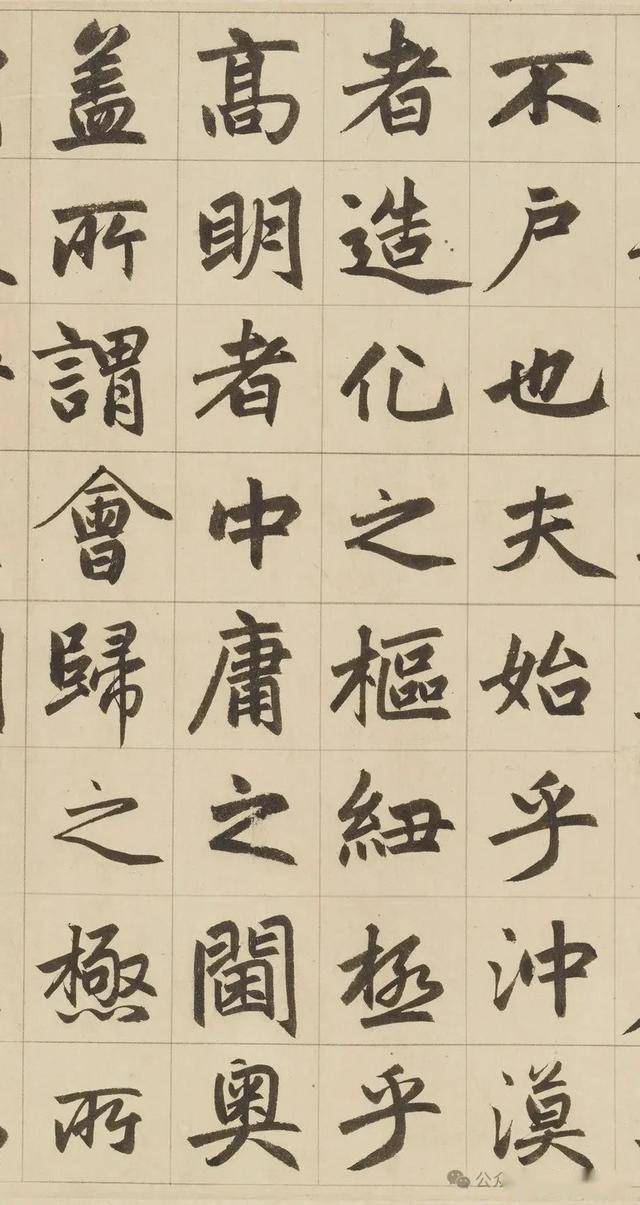 不户也夫始乎沖漠
者造化之樞紐極乎
髙明者中庸之閫奥
盖所謂會歸之極所
公众